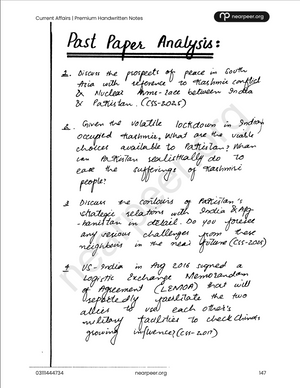 Current Affairs | Premium Handwritten Notes
nearpeer.org
Past Paper Analysis:
Discuss the prospects of peace in South
Asia with reference to Kashmir conflict
& Nuclear Arms-race between India
& Pakistan. (CSS-2025)
Given the volatile lockdown in Indian
occupied Kashmir, What are the viable
choices available to Pakistan? What
can Pakistan realistically do to
ease the sufferings of Kashmiri
people?
Discuss the contours of Pakistan's
strategic relations with India & Afg-
hanistan in Do you foresee
any serious challenges from these
neighbours in the near future (CSS-
US-India in Aug 2016 signed a
Logistic Exchange Memorandum
of Agreement (LEMOA) that will
reportedly facilitate the two
allies to use each other's
military facilities to check China's
growing influence (CSS-2017)
nearpeer.org
0311444734
nearpeer.org
147